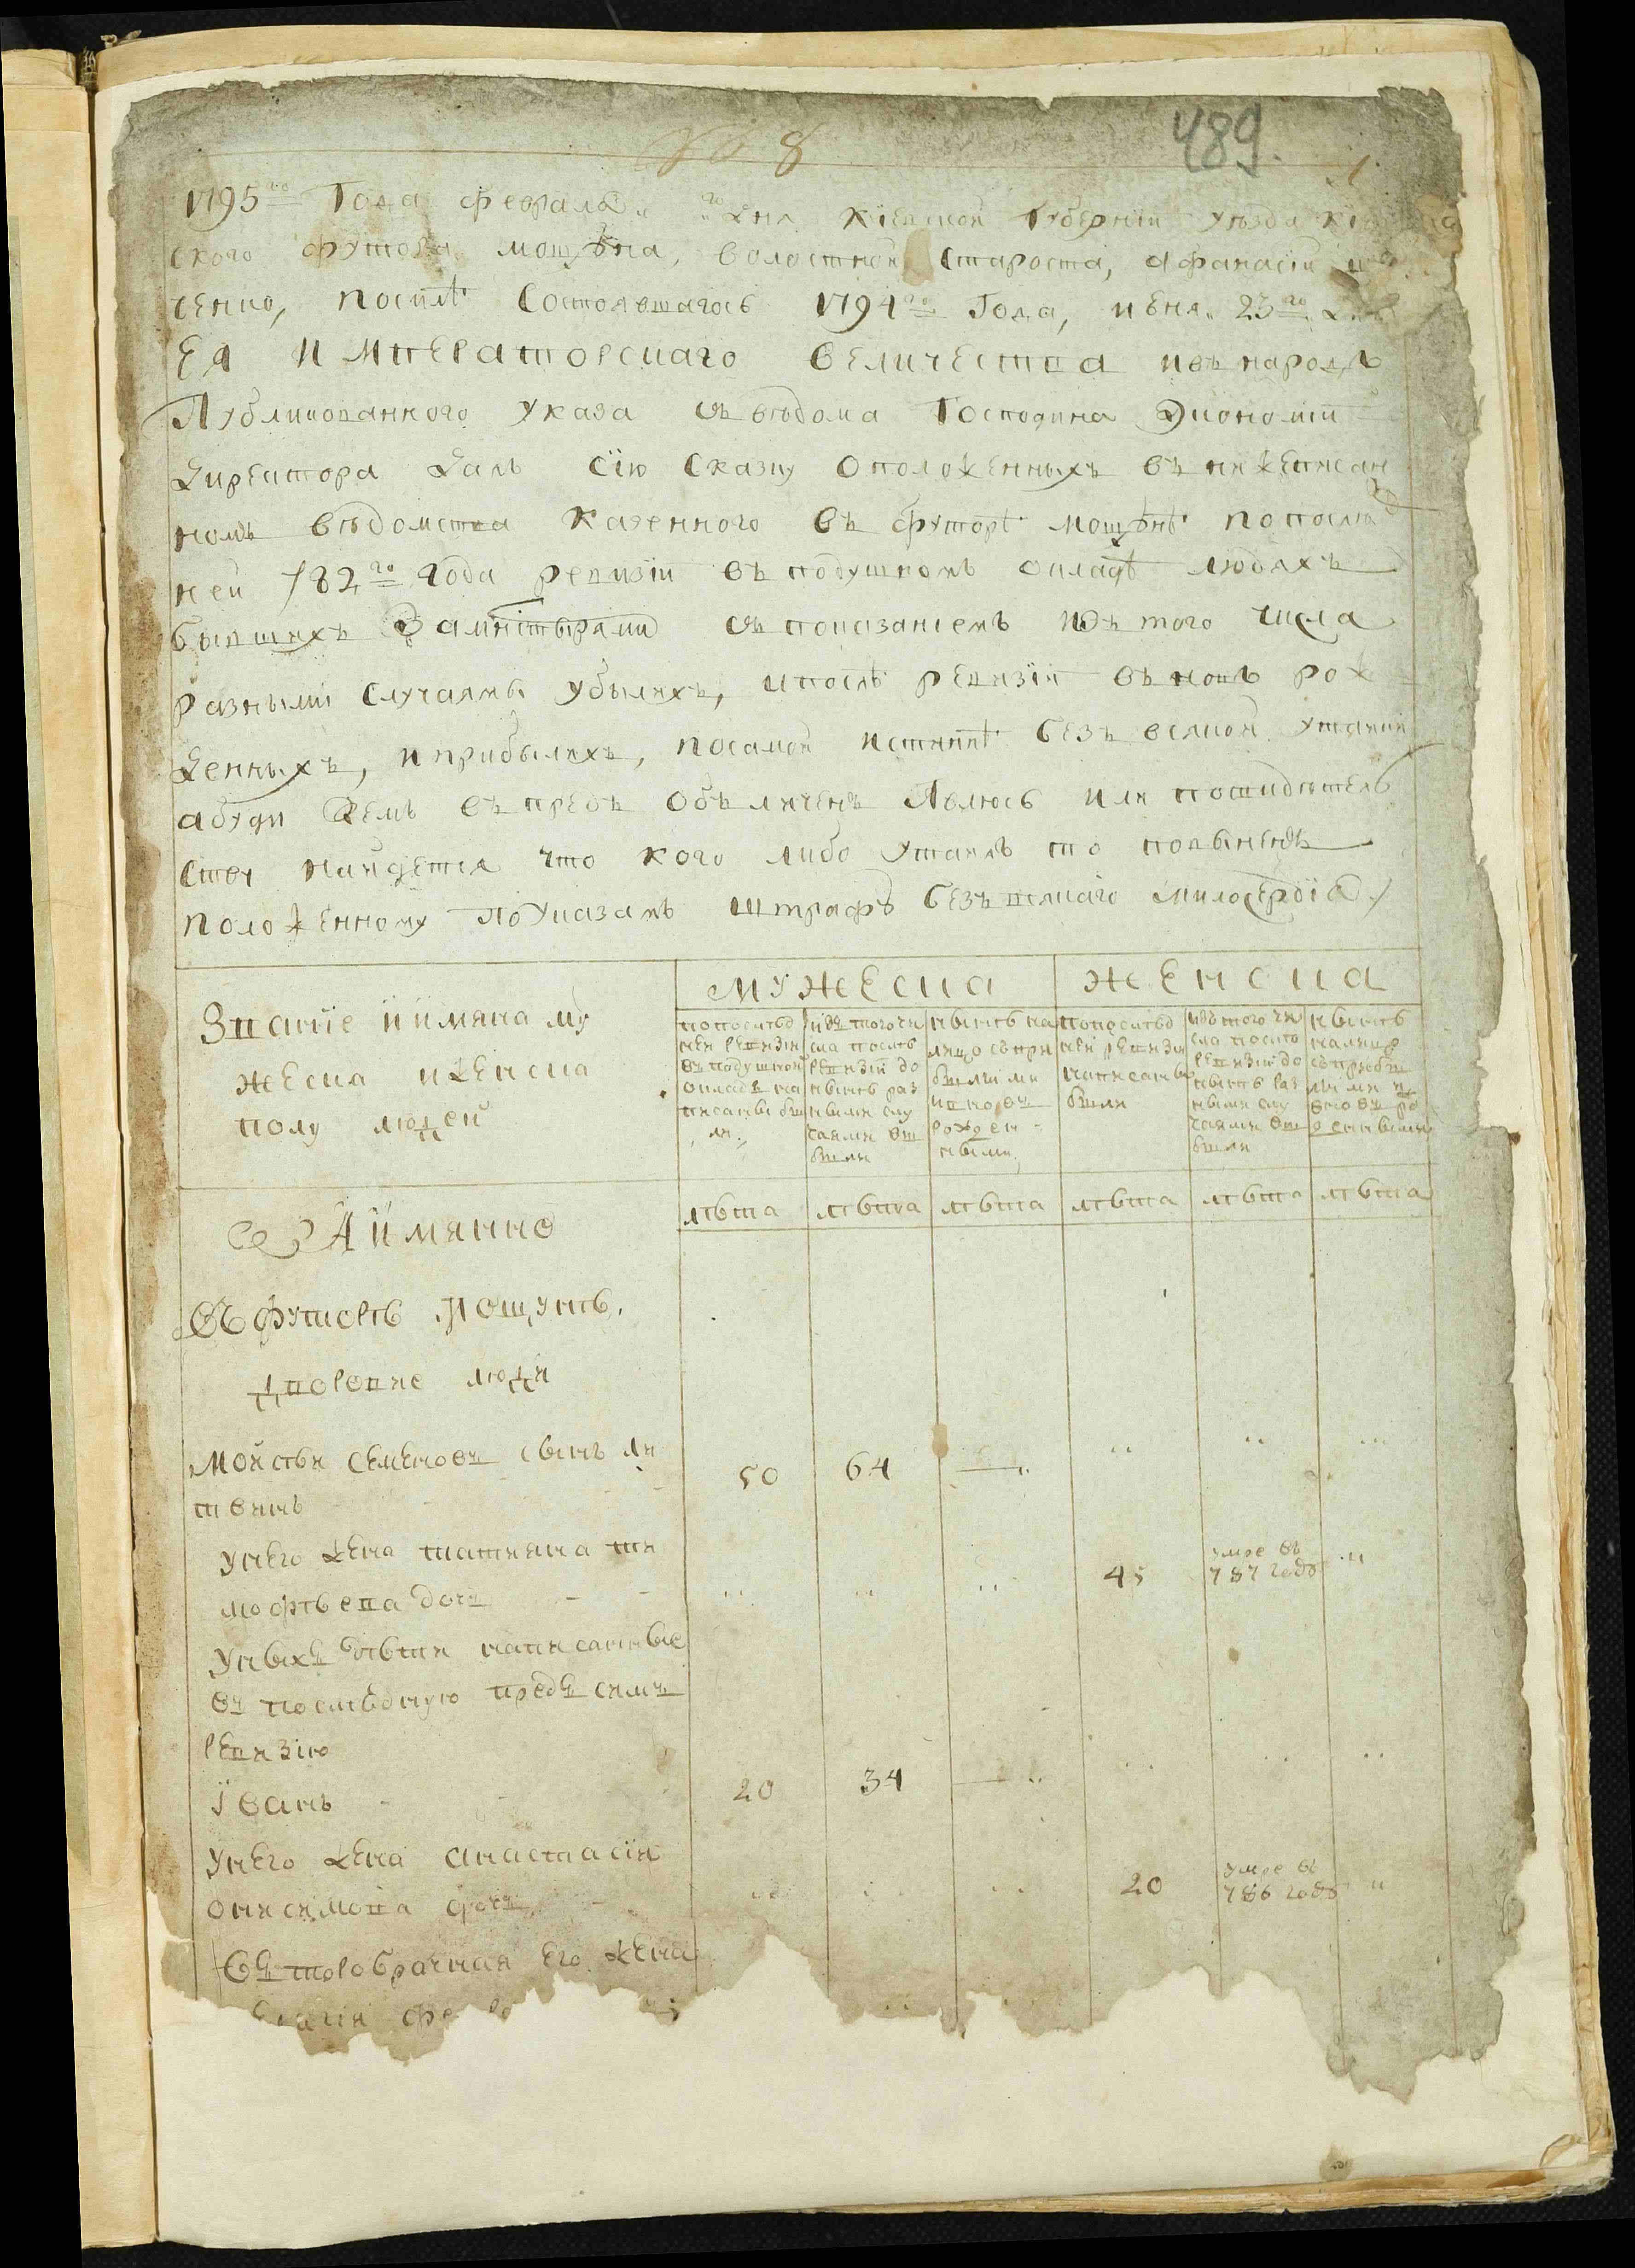 № 8
489.
1795го Года февраля „ „го дня Киевской Губернїи уезда Кїев
ского футора мощуна, волостной Староста, афанасїй
ченко, посилѣ Состоявшагось 1794го Года, июня 23го дня
ЕЯ ИМПЕРАТОРСКАГО ВЕЛИЧЕСТВА и въ народъ
Публикованного Указа съ вѣдома Господина Економїи
Директора Далъ сїю Сказку о положенныхъ въ нижеписан
номъ вѣдомства Казенного въ футорѣ мощунѣ по послѣд
ней 782го года ревизїи въ подушномъ окладѣ людяхъ
бывшихъ съ показанїемъ изъ того числа
разными случаямы убылихъ, и послѣ ревизїи въ новъ рож
денныхъ, и прибылихъ, по самой истиннѣ безъ всякой утайки
а буди чемъ въ предь объличенъ Явлюсь или по свидѣтель
ству найдется что кого либо утаилъ то повыненъ
положенному по Указамъ штрафъ безъ всякаго милосердїя /
МУЖЕСКА ЖЕНСКА
Званїе и имяна му
жеска и женска
полу людей
по послѣд
ней ревизїи
въ подушной
окладъ на
писаны бы
ли
изъ того чи
сла послѣ
ревизїй до
нынѣ раз
ными слу
чаями вы
были
нынѣ на
лицо съ при
былыми
и вновъ
рожден
ными
по послѣд
ней ревизїи
написаны
были
изъ того чи
сла послѣ
ревизїй до
нынѣ раз
ными слу
чаями вы
были
нынѣ
на лицо
съ прибы
лыми и
вновъ ро
жденными
лѣта лѣта лѣта лѣта лѣта лѣта
А имянно
Въ футорѣ Мощунѣ,
Дворовие люди
Мойсѣй Семеновъ сынъ ли
твинъ 50 64 — „
У него жена татияна ти
мофѣева дочь 45 умре въ 787 году „
У ныхъ дѣти написанные
въ последную предъ симъ
ревизїю
Їванъ 20 34 — „
У него жена анастасїя
онисимова дочь 20 умре въ 786 году „
Въторобрачная его жена